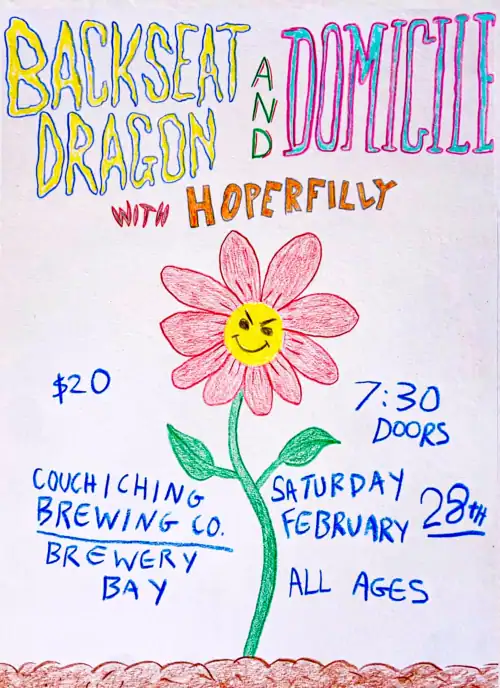 BACKSEAT
DRAGON
AND
DOMICILE
WITH HOPERFILLY
$20
7:30
DOORS
COUCHICHING
BREWING CO.
BREWERY
BAY
SATURDAY
FEBRUARY 28TH
ALL AGES